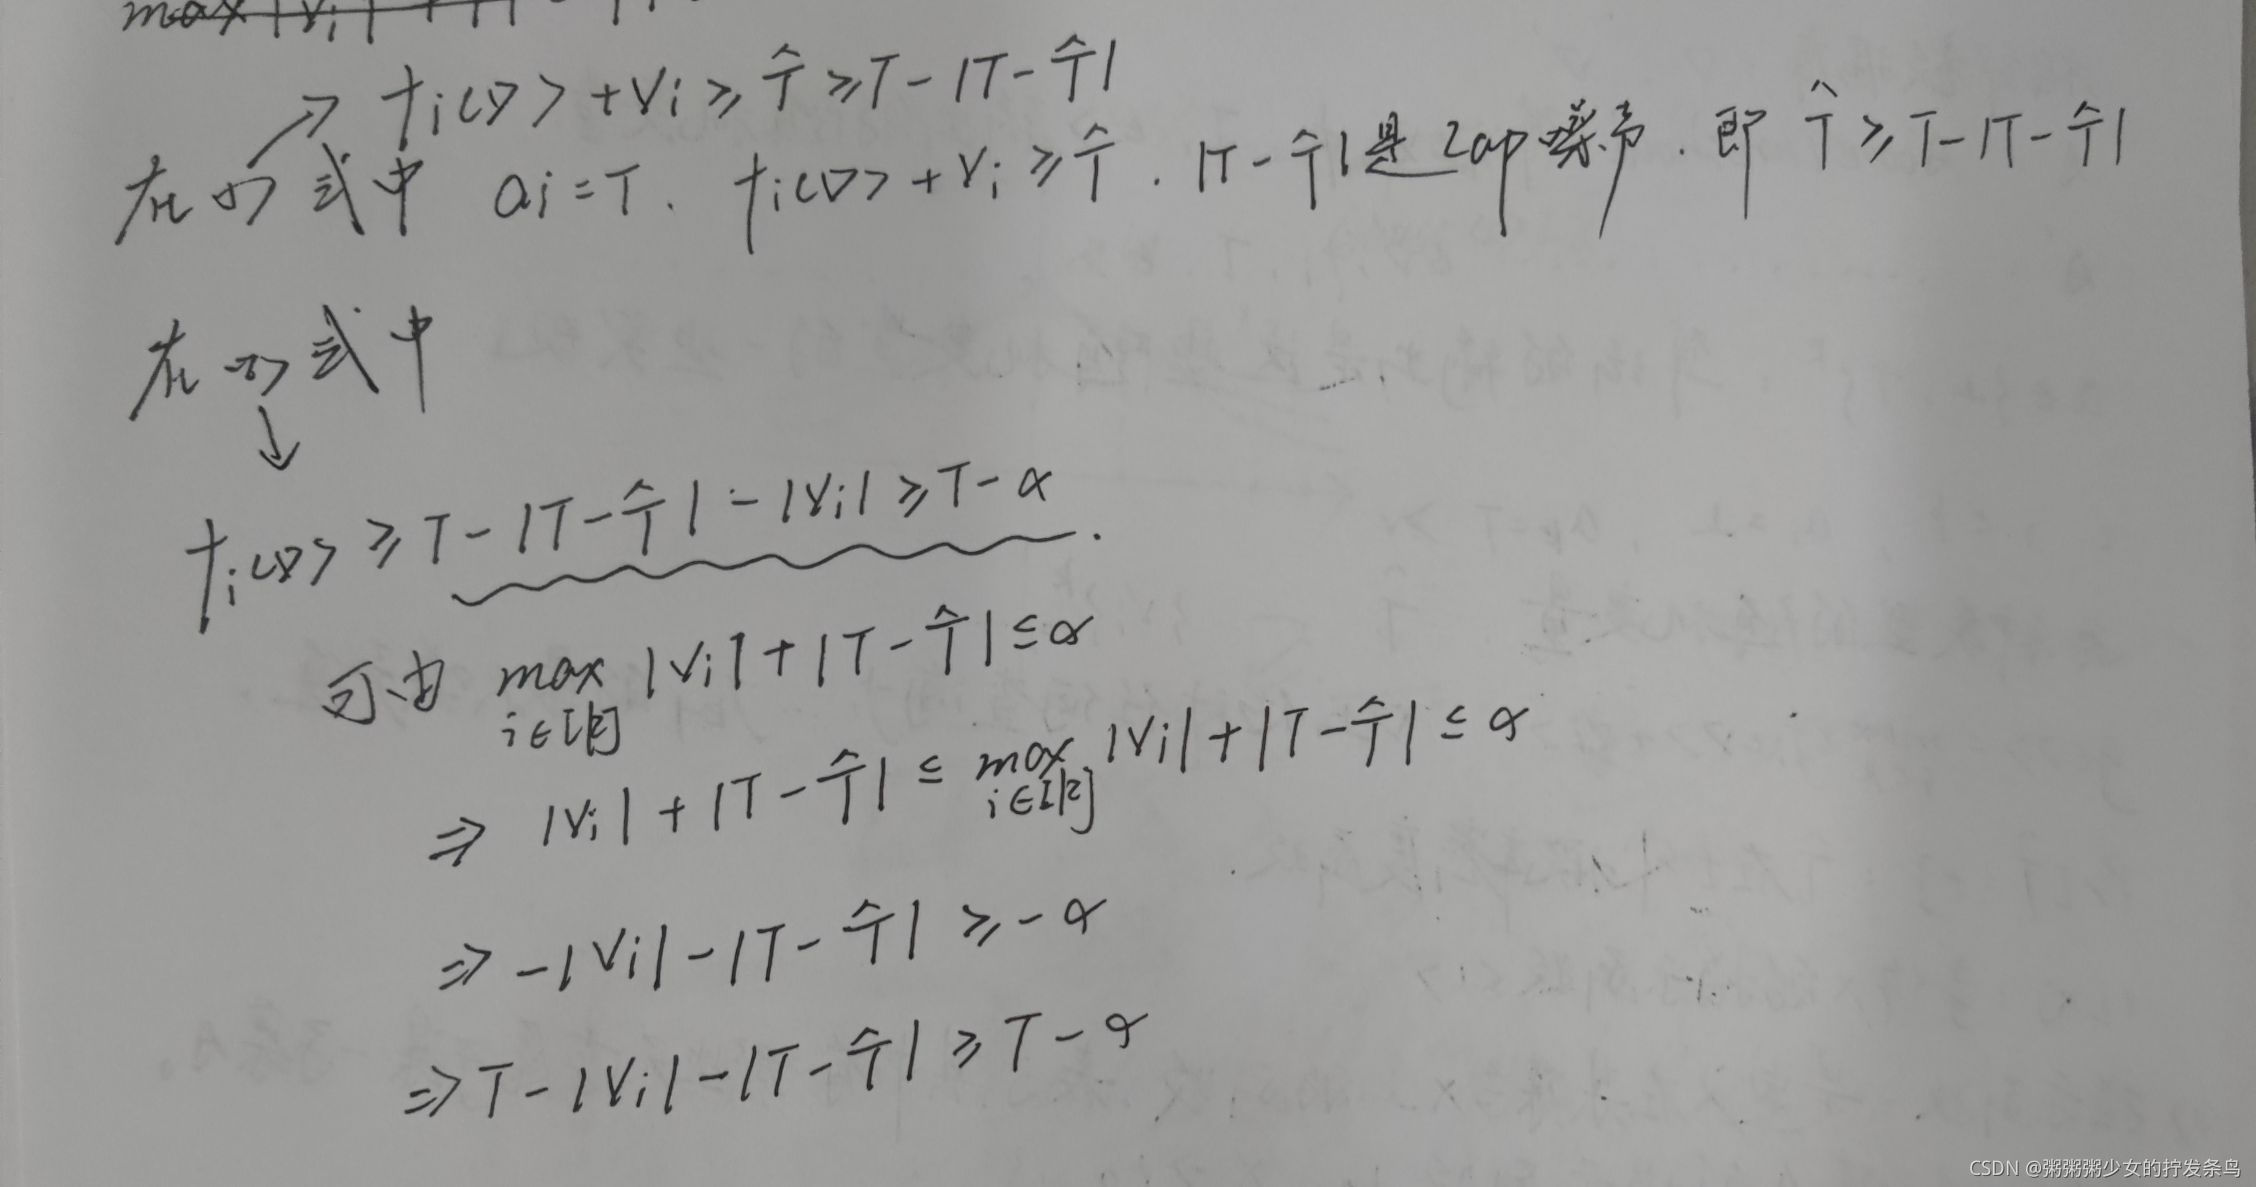 max |Vi| +
fi(D) + Vi ≥ T̂ ≥ T - |T - T̂|
在 式中 ai = T. fi(D) + Vi ≥ T̂. |T - T̂| 是 Lap 噪声. 即 T̂ ≥ T - |T - T̂|
在 式中
fi(D) ≥ T - |T - T̂| - |Vi| ≥ T - α.
可由 max |Vi| + |T - T̂| ≤ α
i∈[k]
⇒ |Vi| + |T - T̂| ≤ max |Vi| + |T - T̂| ≤ α
i∈[k]
⇒ -|Vi| - |T - T̂| ≥ -α
⇒ T - |Vi| - |T - T̂| ≥ T - α
CSDN @粥粥粥少女的拧发条鸟